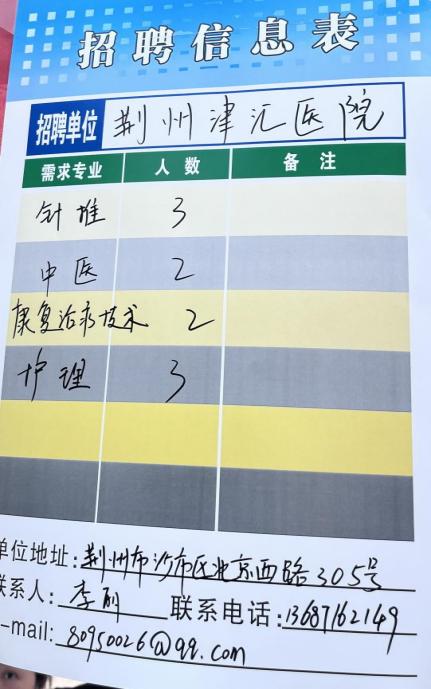 招聘信息表
招聘单位 荆州津汇医院
需求专业 人数 备注
针推 3
中医 2
康复治疗技术 2
护理 3
单位地址:荆州市沙市区北京西路305号
联系人:李丽 联系电话:13687162149
-mail: 80950026@qq.com